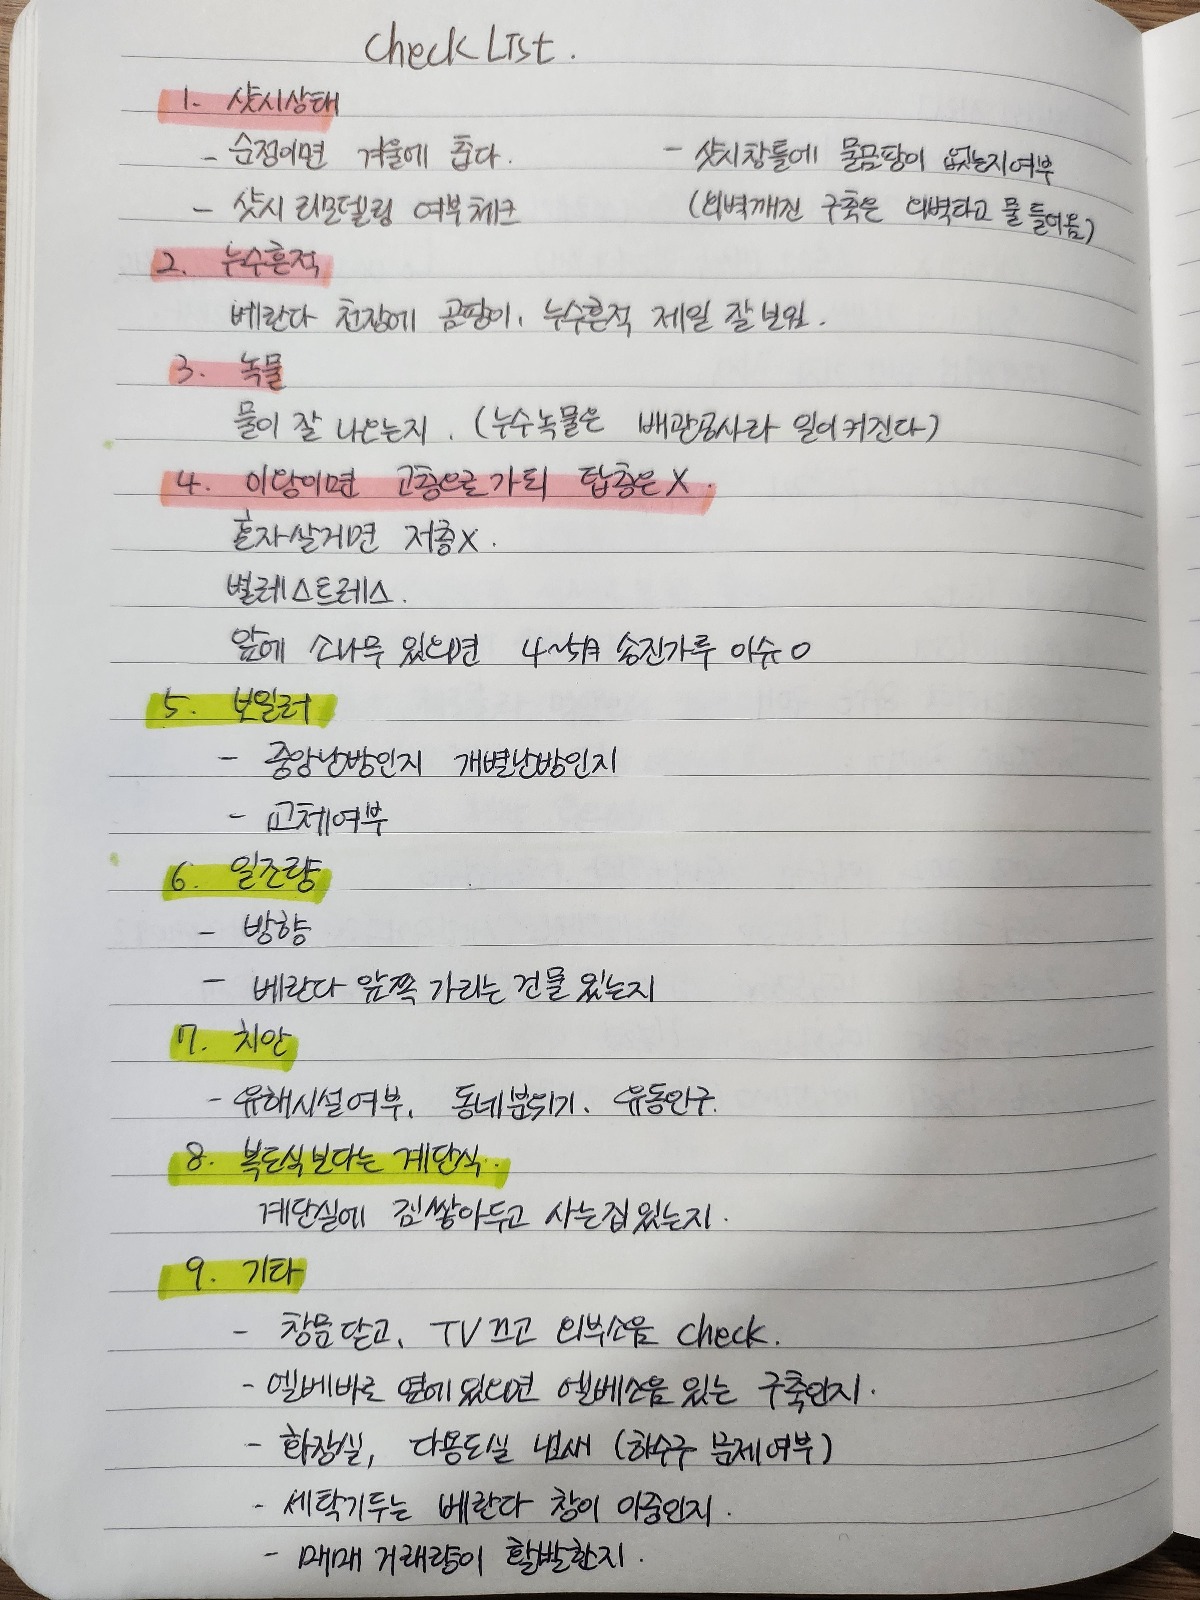 Check List.
1. 샷시상태
- 순정이면 겨울에 춥다.
- 샷시 리모델링 여부체크
- 샷시창틀에 물곰팡이 없는지여부
(외벽깨진 구축은 외벽타고 물 들어옴)
2. 누수흔적
베란다 천장에 곰팡이, 누수흔적 제일 잘 보임.
3. 녹물
물이 잘 나오는지. (누수녹물은 배관공사라 일이커진다)
4. 이왕이면 고층으로가되 탑층은X.
혼자살거면 저층X.
벌레스트레스.
앞에 소나무 있으면 4~5月 송진가루 이슈O
5. 보일러
- 중앙난방인지 개별난방인지
- 교체여부
6. 일조량
- 방향
- 베란다 앞쪽 가리는 건물 있는지
7. 치안
- 유해시설여부, 동네분위기, 유동인구.
8. 복도식보다는 계단식.
계단실에 짐쌓아두고 사는집있는지.
9. 기타
- 창문닫고, TV끄고 외부소음 check.
- 엘베바로 옆에있으면 엘베소음 있는 구축인지.
- 화장실, 다용도실 냄새 (하수구 문제여부)
- 세탁기두는 베란다 창이 이중인지.
- 매매 거래량이 활발한지.